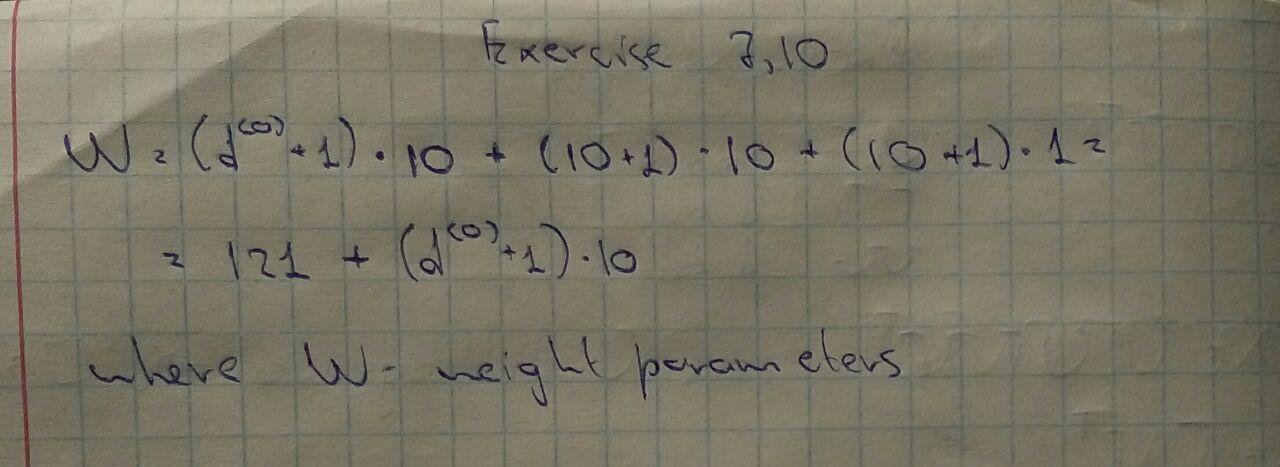 Exercise 7,10
W = (d^(0) + 1) · 10 + (10+1) · 10 + (10+1) · 1 =
= 121 + (d^(0) + 1) · 10
where W - weight parameters